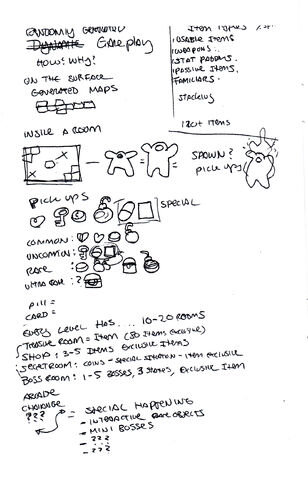 RANDOMLY GENERATED
DYNAMIC GAMEPLAY
HOW? WHY?
ON THE SURFACE
GENERATED MAPS
ITEM TYPES
USABLE ITEMS
WEAPONS.
STAT PADDERS.
PASSIVE ITEMS.
FAMILIARS.
STACKING
120+ ITEMS
INSIDE A ROOM
SPAWN?
PICK UPS
PICK UPS
SPECIAL
COMMON:
UNCOMMON:
RARE
ULTRA RARE: ?
PILL =
CARD =
EVERY LEVEL HAS ... 10-20 ROOMS
TREASURE ROOM = ITEM (80 ITEMS EXCLUSIVE)
SHOP: 3-5 ITEMS EXCLUSIVE ITEMS
SECRET ROOM: COINS - SPECIAL SITUATION - ITEM EXCLUSIVE
BOSS ROOM: 1-5 BOSSES, 3 STATES, EXCLUSIVE ITEM
ARCADE
CHALLENGE
??? = SPECIAL HAPPENING
- INTERACTIVE RARE OBJECTS
- MINI BOSSES
- ???
- ???